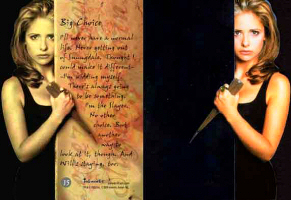 Big Choice
I'll never have a normal
life. Never getting out
of Sunnydale. Thought I
could make it different-
I'm kidding myself.
There's always going
to be something.
I'm the Slayer.
No other
choice. But
another
way to
look at it, though. And
Will's staying, too.
15